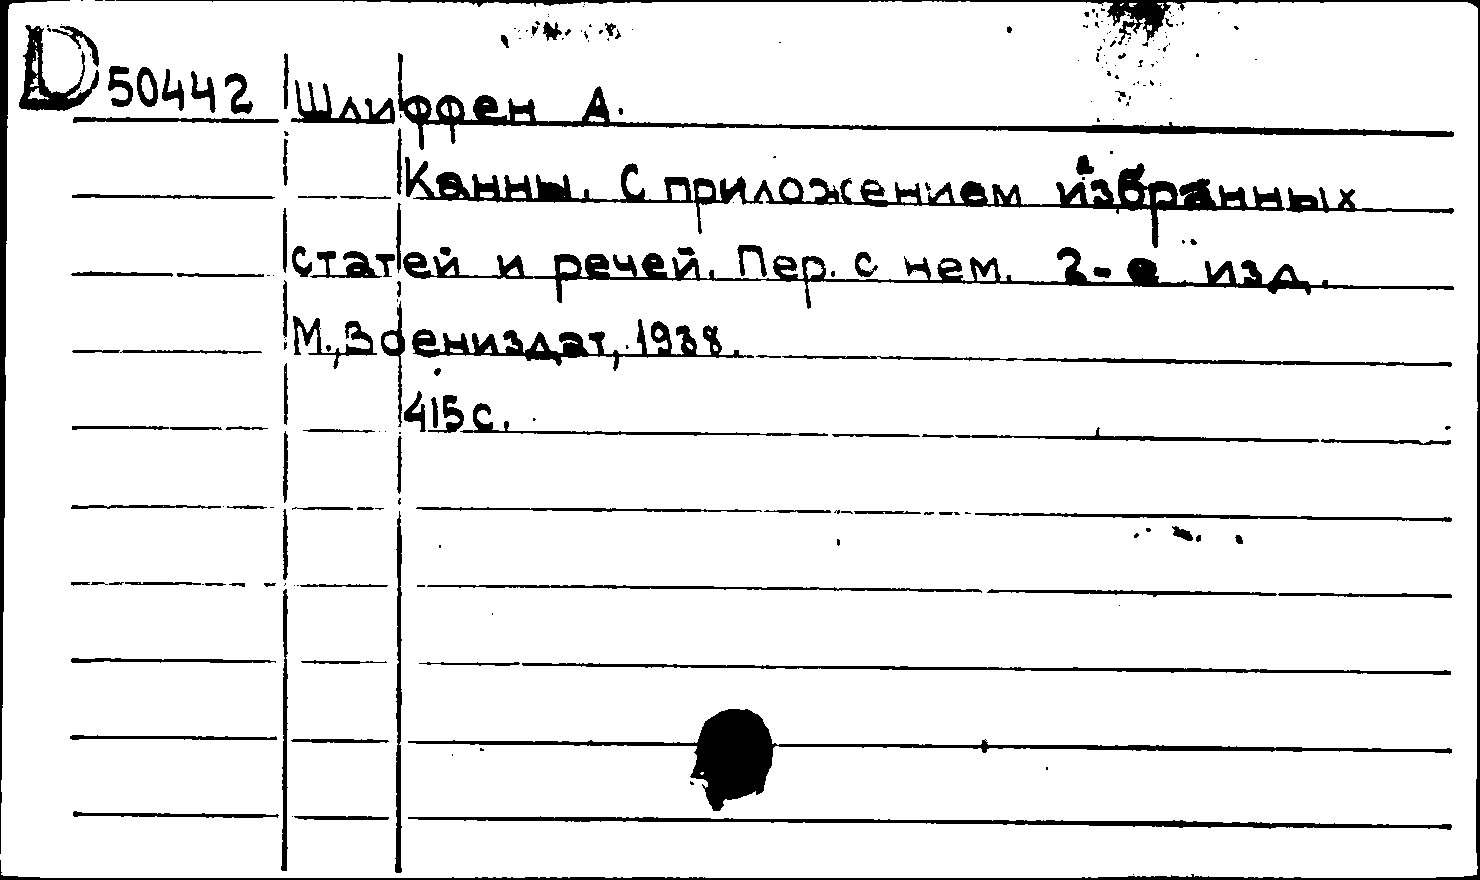 D 50442 Шлиффен А.
Канны. С приложением избранных
статей и речей. Пер. с нем. 2-е изд.
М., Воениздат, 1938.
415 с.